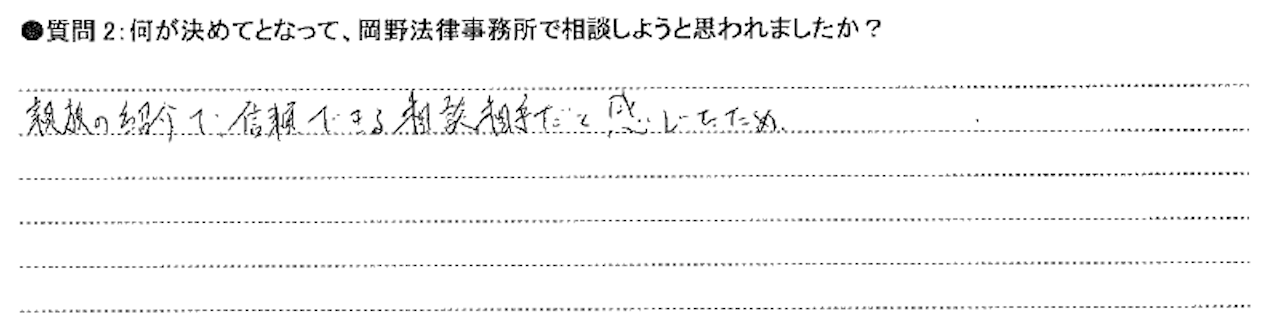 ●質問2:何が決めてとなって、岡野法律事務所で相談しようと思われましたか?
親族の紹介で信頼できる相談相手だと感じたため。